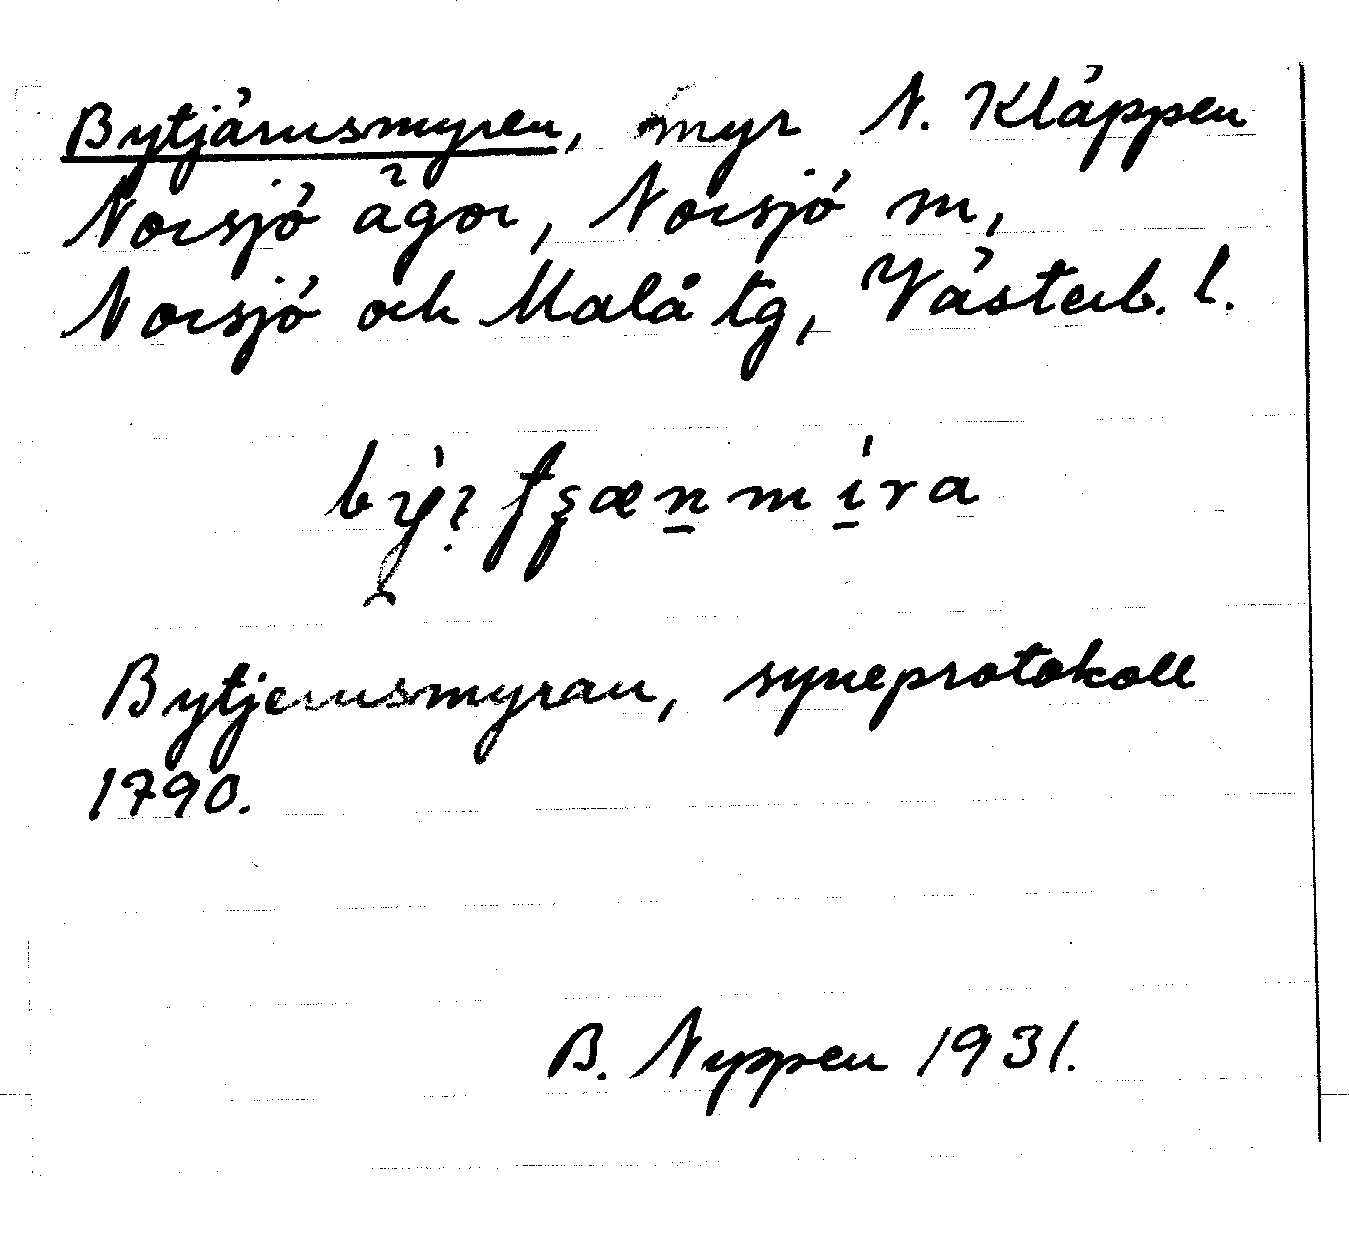 Bytjärnsmyren, myr N. Kläppen
Norsjö ägor, Norsjö sn,
Norsjö och Malå tg, Västerb. l.
Bytjernsmyran, syneprotokoll
1790.
B. Nyppen 1931.